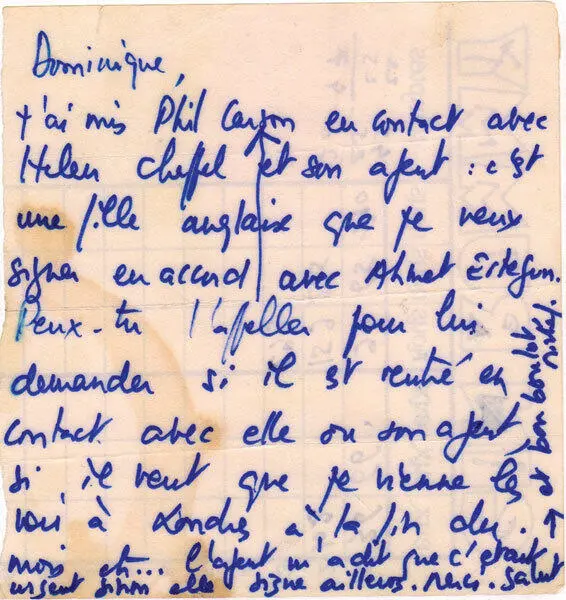 Dominique,
j'ai mis Phil Carson en contact avec
Helen Cheppel et son agent : c'est
une fille anglaise que je veux
signer en accord avec Ahmet Ertegun.
Peux-tu l'appeller pour lui
demander si il est rentré en
contact avec elle ou son agent
si il veut que je vienne les
voir à Londres à la fin du
mois et... L'agent m'a dit que c'étant
urgent sinon elle signe ailleurs. Merci. Salut
→ et bon boulot